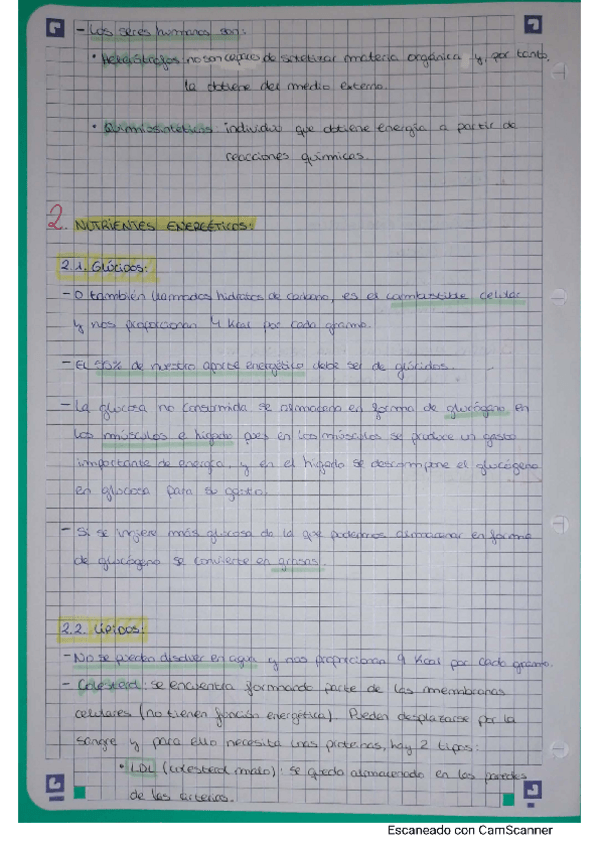 - Los seres humanos son:
• Heterótrofos: no son capaces de sintetizar materia orgánica y, por tanto,
la obtiene del medio externo.
• Quimiosintéticos: individuo que obtiene energía a partir de
reacciones químicas.
2. NUTRIENTES ENERGÉTICOS:
2.1. Glúcidos:
- O también llamados hidratos de carbono, es el combustible celular
y nos proporcionan 4 Kcal por cada gramo.
- El 55% de nuestro aporte energético debe ser de glúcidos.
- La glucosa no consumida se almacena en forma de glucógeno en
los músculos e hígado pues en los músculos se produce un gasto
importante de energía, y en el hígado se descompone el glucógeno
en glucosa para su gasto.
- Si se ingiere más glucosa de la que podemos almacenar en forma
de glucógeno se convierte en grasas.
2.2. Lípidos:
- No se pueden disolver en agua y nos proporcionan 9 Kcal por cada gramo.
- Colesterol: se encuentra formando parte de las membranas
celulares (no tienen función energética). Pueden desplazarse por la
sangre y para ello necesita unas proteínas, hay 2 tipos:
• LDL (colesterol malo): se queda almacenado en las paredes
de las arterias.
Escaneado con CamScanner